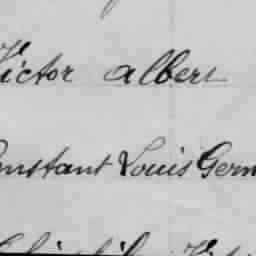 Victor albert
Constant Louis Germ